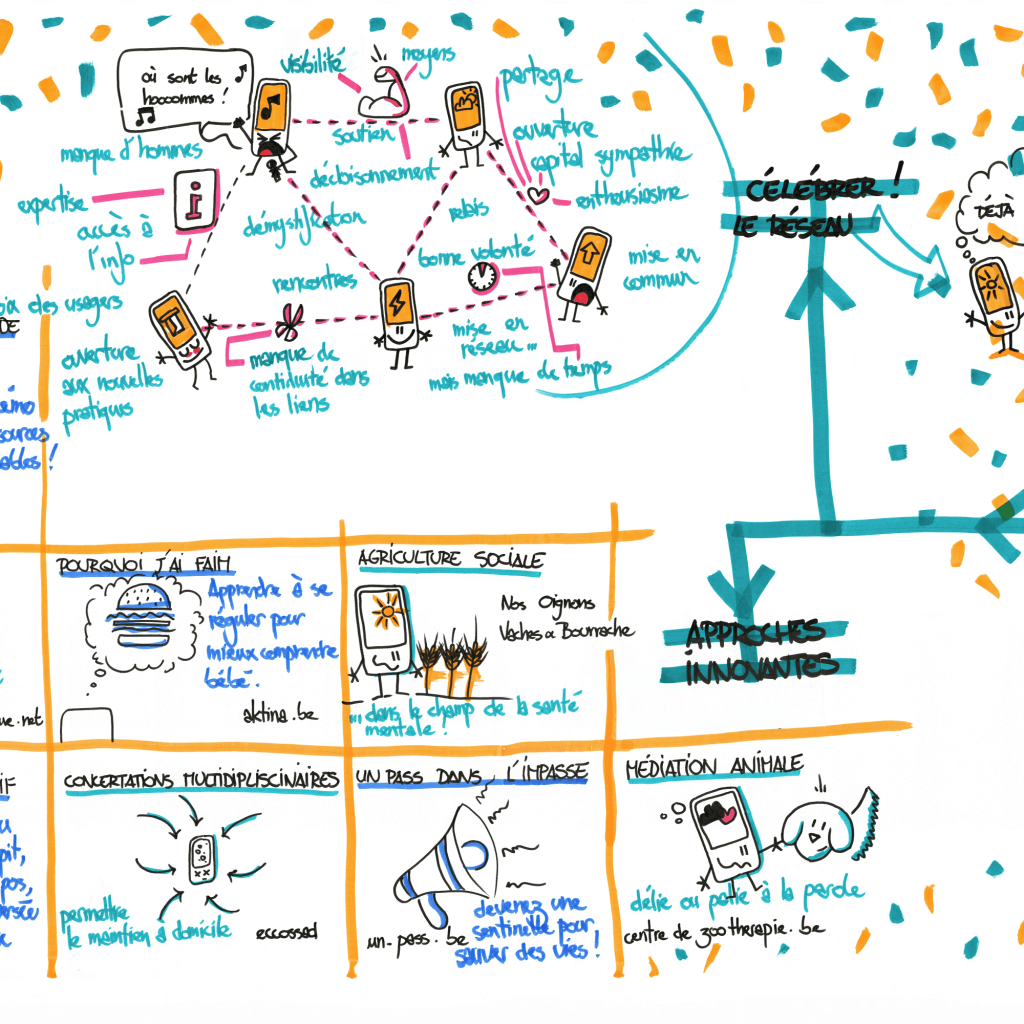 où sont les
hooommes !
manque d'hommes
visibilité
moyens
soutien
décloisonnement
partage
ouverture
capital sympathie
enthousiasme
expertise
accès à
l'info
démystification
relais
bonne volonté
rencontres
mise en
commun
mise en
réseau...
mais manque de temps
manque de
continuité dans
les liens
des usagers
DE
ouverture
aux nouvelles
pratiques
CÉLÉBRER !
LE RÉSEAU
DÉJÀ
POURQUOI J'AI FAIM
Apprendre à se
réguler pour
mieux comprendre
bébé.
aktina.be
AGRICULTURE SOCIALE
Nos Oignons
Vaches & Bourrache
... dans le champ de la santé
mentale !
APPROCHES
INNOVANTES
CONCERTATIONS MULTIDIPLISCINAIRES
permettre
le maintien à domicile
eccossad
UN PASS DANS L'IMPASSE
un-pass.be
devenez une
sentinelle pour
sauver des vies !
MÉDIATION ANIMALE
délie ou pallie à la parole
centre de zootherapie.be